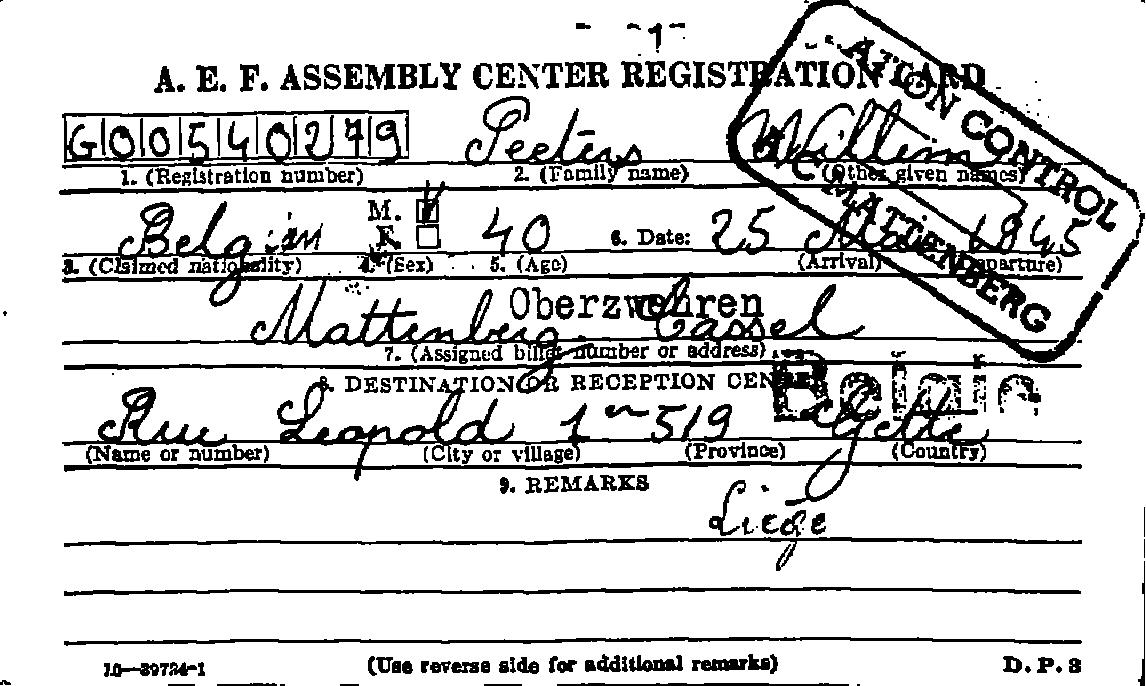 - -1-
A. E. F. ASSEMBLY CENTER REGISTRATION CARD
G00540279 Peeters Willem
1. (Registration number) 2. (Family name) (Other given names)
M.
Belgian F. 40 6. Date: 25 1945
3. (Claimed nationality) 4. (Sex) 5. (Age) (Arrival) (Departure)
Oberzwehren
Mattenberg Cassel
7. (Assigned billet number or address)
8. DESTINATION OR RECEPTION CENTER
Belgie
Rue Leopold 1er 519 Jette
(Name or number) (City or village) (Province) (Country)
9. REMARKS
Liege
16—39724-1 (Use reverse side for additional remarks) D. P. 3
ATION CONTROL
MATTENBERG